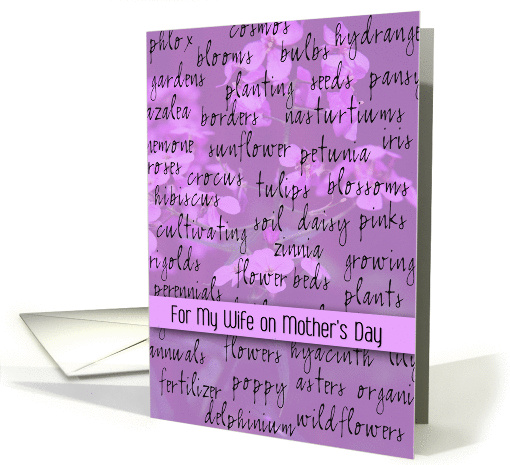 cosmos
phlox blooms bulbs hydrange
gardens planting seeds pansy
azalea borders nasturtiums
nemone sunflower petunia iris
roses crocus tulips blossoms
hibiscus
cultivating soil daisy pinks
zinnia
rigolds flower beds growing
perennials plants
For My Wife on Mother's Day
annuals flowers hyacinth lily
fertilizer poppy asters organi
delphinium wildflowers